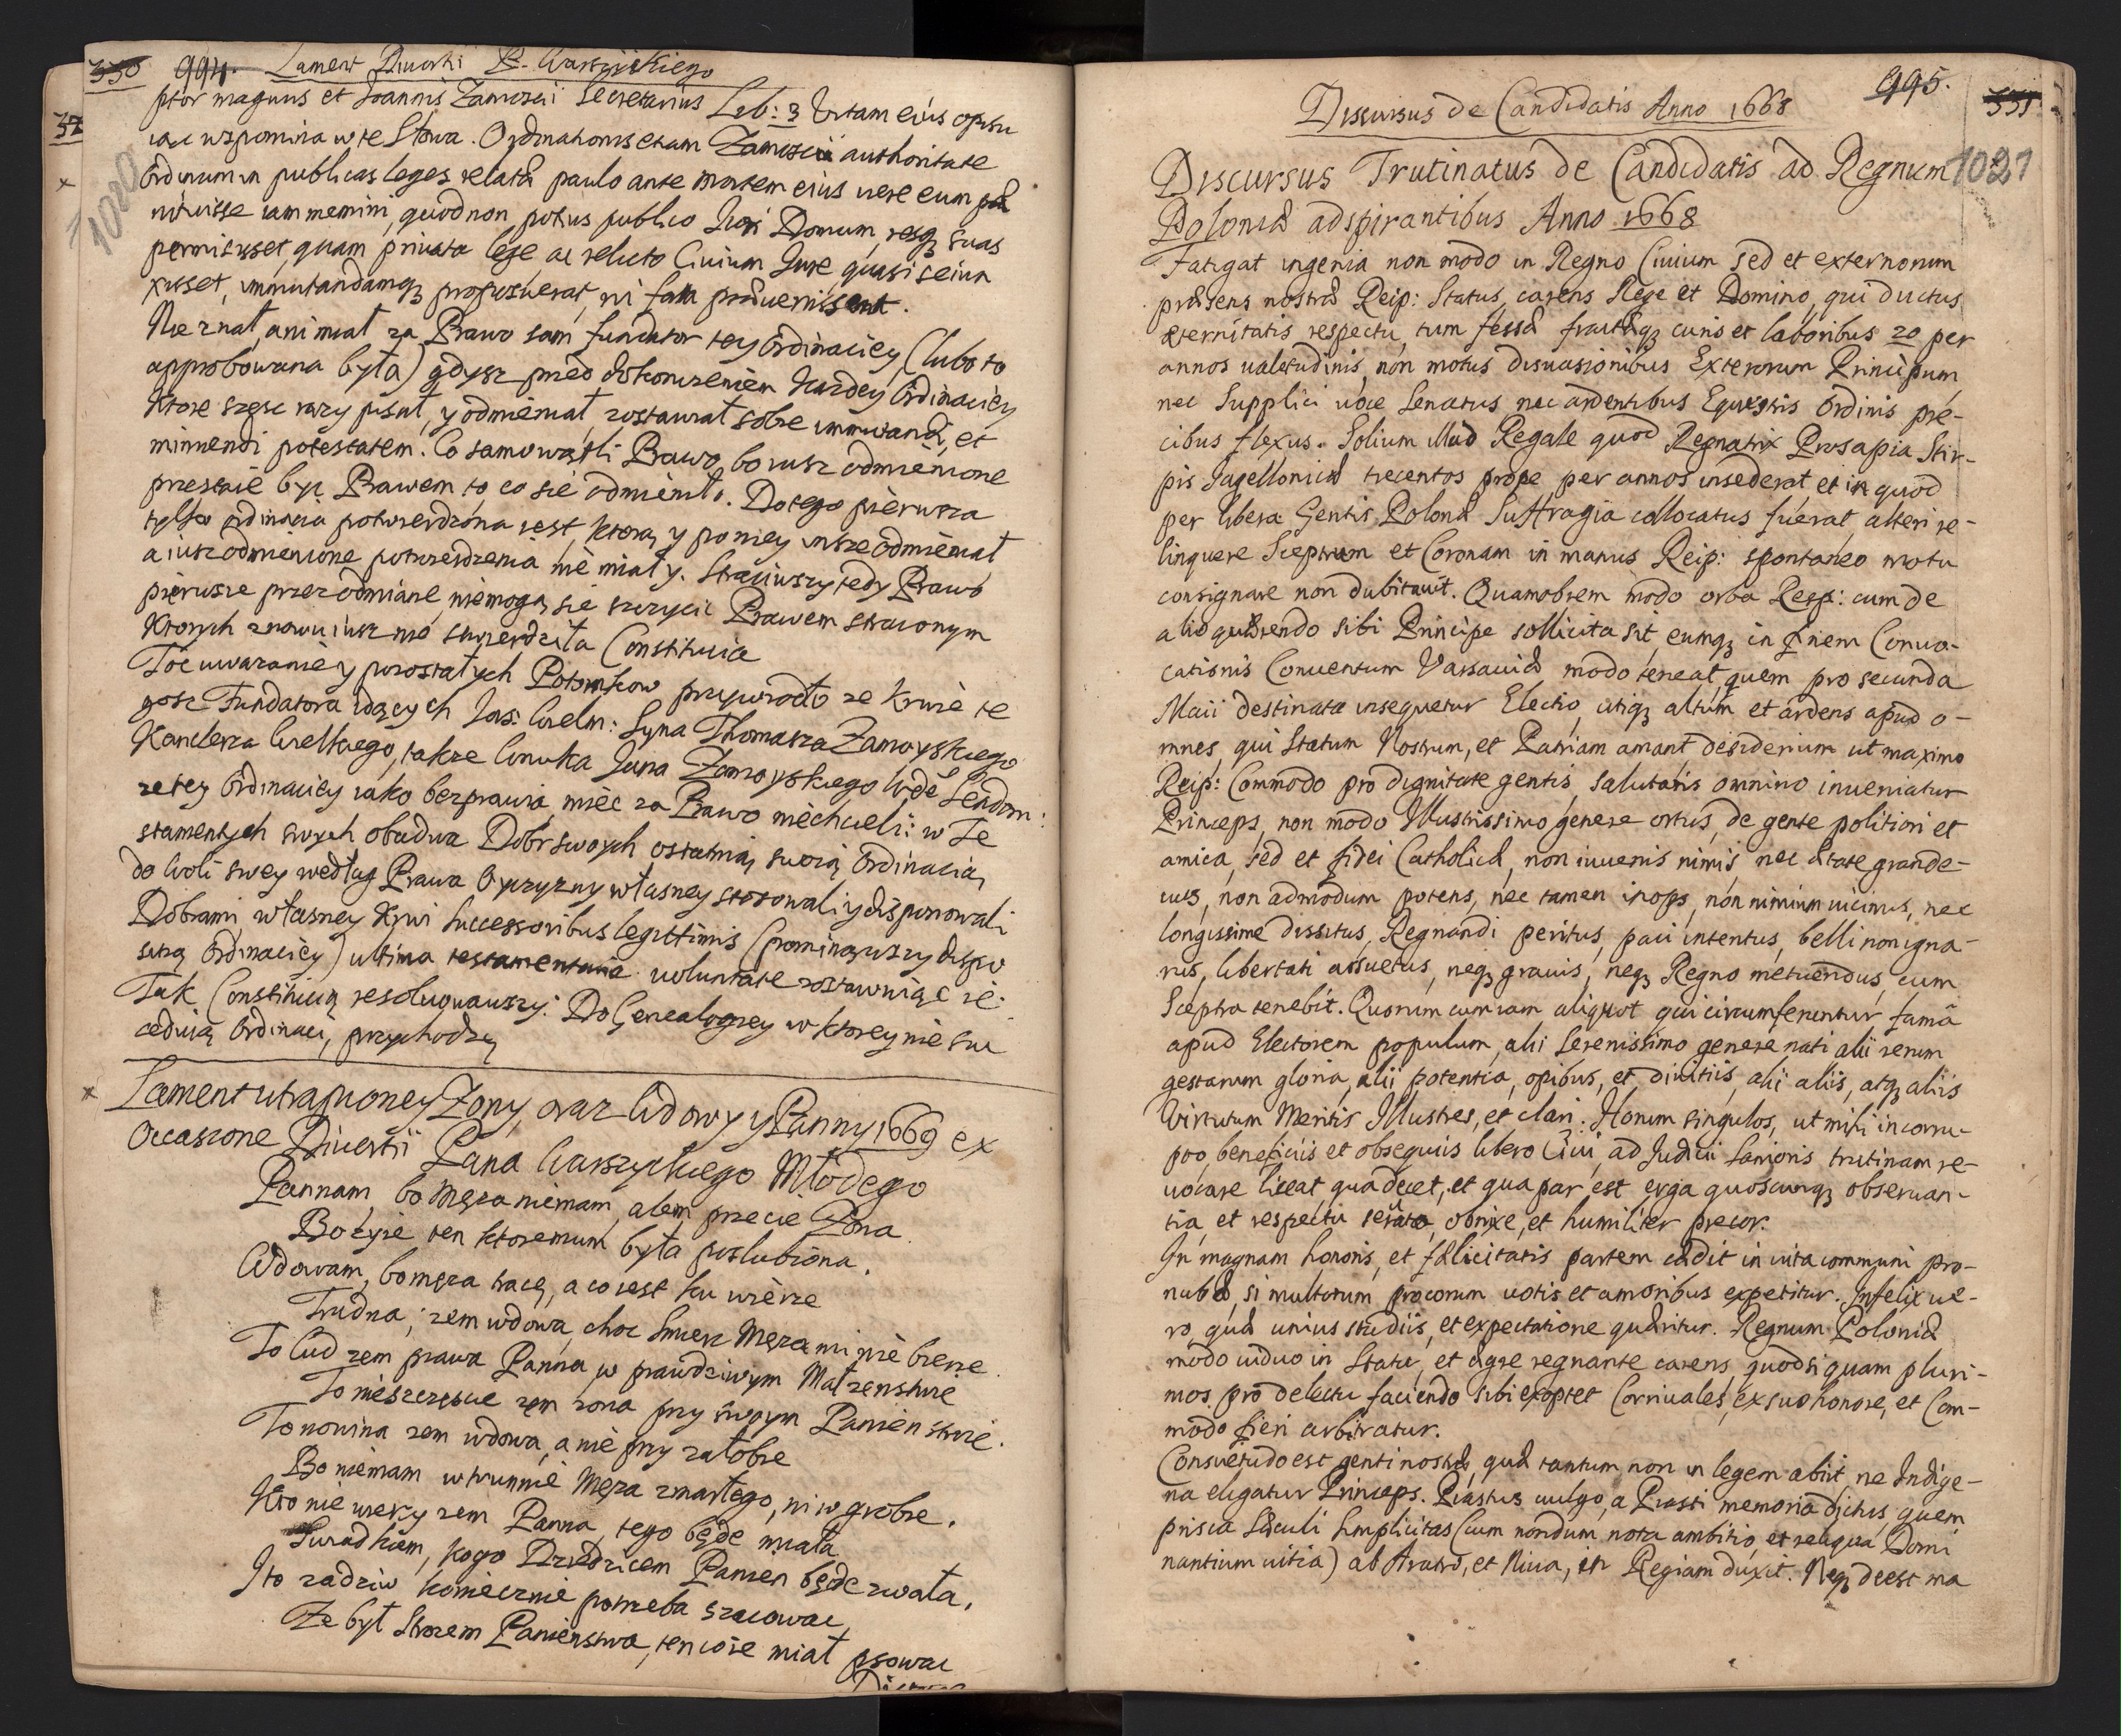 994. Lament Diworki P. Warszyckiego
ptor magnus et Joannis Zamoscii Secretarius Lib: 3 Vitam eius opisu
iąc wspomina w te Słowa. Ordinationis etiam Zamoscii authoritate
Ordinum in publicas leges relatæ paulo ante mortem eius vere eum pæ
nituisse iam memini, quod non potius publico Juri Domum, resq; suas
permisisset, quam privata lege ac velut Civium Jure, quasi seiun
xisset, immutandamq; proposuerat, ni fata prævenissent.
Nie znał, ani miał za Prawo sam fundator tey Ordinaciey (lubo to
approbowana była) gdysz przed dokonczeniem kazdey Ordinaciey
Ktore szesc razy pisał, y odmieniał, zostawiał sobie immutandi, et
minuendi potestatem. Co samo wątli Prawo, bo iusz odmienione
przestaie byc Prawem to, co sie odmieniło. Do tego pierwsza
tylko Ordinacia potwierdzona iest, ktorą y po niey insze odmieniał
a iusz odmienione potwierdzenia nie miały. Straciwszy tedy Prawo
pierwsze przez odmiane, niemogą sie szczycic Prawem straconym
Ktorych znowu iusz nie stwierdziła Constitucia
Toc uwazanie y pozostałych Potomkow przywiodło ze krwie te
gosz Fundatora idących Jas: Wielm: Syna Thomasza Zamoyskiego
Kanclerza Wielkiego, takze Wnuka Jana Zamoyskiego Wde Sendom:
ze tey Ordinaciey iako bezprawia, miec za Prawo niechcieli: w Te
stamentych swych obudwa Dobr swoych ostatnią swoią Ordinacią
do woli swey według Prawa Oyczyzny własney szosowali y disponowali
Dobrami, własney Krwi Successoribus legittimis (pominąwszy dispo
sitią Ordinaciey) ultima testamentaria voluntate zostawuiąc ie.
Tak Constitucią resolwowawszy: Do Genealogiey w ktorey nie suc
ceduią Ordinaci, przychodzę
Lament utrapioney Zony, oraz Wdowy y Panny 1669 ex
Occasione Divortii Pana Warszyckiego Młodego
Pannam, bo Męza niemam, alem przecie Zona
Bo zyie ten ktoremum była poslubiona.
Wdowam, bo męza tracę, a co iest ku wierze
Trudna; zem wdowa, choc Smierc Męza mi nie bierze.
To Cud zem prawa Panna w prawdziwym Malzenstwie
To nieszczęscie zem zona przy swoym Panienstwie.
To nowina zem wdowa, a nie przy załobie
Bo niemam w trunnie Męza zmarłego, ni w grobie.
Kto nie wierzy zem Panna, tego będe miała
Swiadkiem, kogo Dziedzicem Panien będe zwała.
I to za dziw koniecznie potrzeba szacowac
Ze był Strozem Panienstwa, ten co ie miał psowac
995.
Discursus de Candidatis Anno 1668
Discursus Trutinatus de Candidatis ad Regnum 1021
Poloniæ adspirantibus Anno 1668
Fatigat ingenia non modo in Regno Civium sed et externorum
præsens nostræ Reip: Status, carens Rege et Domino, qui ductus
æternitatis respectu, tum fessæ fractæq; curis et laboribus 20 per
annos valetudinis, non motus disuasionibus Exterorum Principum,
nec Supplici voce Senatus nec ardentibus Equestris Ordinis pre-
cibus flexus. Solium illud Regale quod Regnatrix Prosapia Stir-
pis Jagellonicæ trecentos prope per annos insederat, et in quod
per libera Gentis Polonæ Suffragia collocatus fuerat, alteri re-
linquere Sceptrum et Coronam in manus Reip: spontaneo motu
consignare non dubitavit. Quamobrem modo orba Resp: cum de
alio quærendo sibi Principe sollicita sit, eumq; in finem Convo-
cationis Conventum Varsaviæ modo teneat, quem pro secunda
Maii destinata insequetur Electio, utiq; altum et ardens apud o-
mnes, qui Statum Nostrum, et Patriam amant, desiderium ut maximo
Reip: Commodo pro dignitate gentis, salutaris omnino inveniatur
Princeps, non modo Illustrissimo genere ortus, de gente politiori et
amica, sed et fidei Catholicæ, non iuvenis nimis, nec ætate grande-
vus, non admodum potens, nec tamen inops, non nimium vicinus, nec
longissime dissitus, Regnandi peritus, paci intentus, belli non igna-
rus, libertati assuetus, neq; gravis, neq; Regno metuendus, cum
Sceptra tenebit. Quorum cum iam aliquot qui circumferuntur famâ
apud Electorem populum, alii Serenissimo genere nati alii rerum
gestarum gloria, alii potentia, opibus, et divitiis, alii aliis, atq; aliis
Virtutum Meritis Illustres, et clari. Horum singulos, ut mihi incorru-
pto, beneficiis et obsequiis libero Civi, ad Judicii Sanioris trutinam re-
vocare liceat, qua decet, et qua par est erga quoscunq; observan-
tia, et respectu servato, obnixe, et humiliter precor.
In magnam honoris, et fælicitatis partem cædit in vita communi pro-
nubæ, si multorum procorum votis et amoribus expetitur. Infelix ve-
ro, quæ unius studiis, et expectatione quæritur. Regnum Poloniæ
modo viduo in Statu, et ægre regnante carens, quod si quam pluri-
mos pro delectu faciendo sibi exoptet Corrivales, ex suo honore, et Com-
modo fieri arbitratur.
Consuetudo est genti nostræ, quæ tantum non in legem abiit, ne Indige-
na eligatur Princeps. Piastus vulgo, a Piasti memoria dictus, quem
prisca Sæculi Simplicitas (cum nondum nota ambitio, et reliqua Domi
nantium vitia) ab Aratro, et Niva, in Regiam duxit. Neq; deest ma